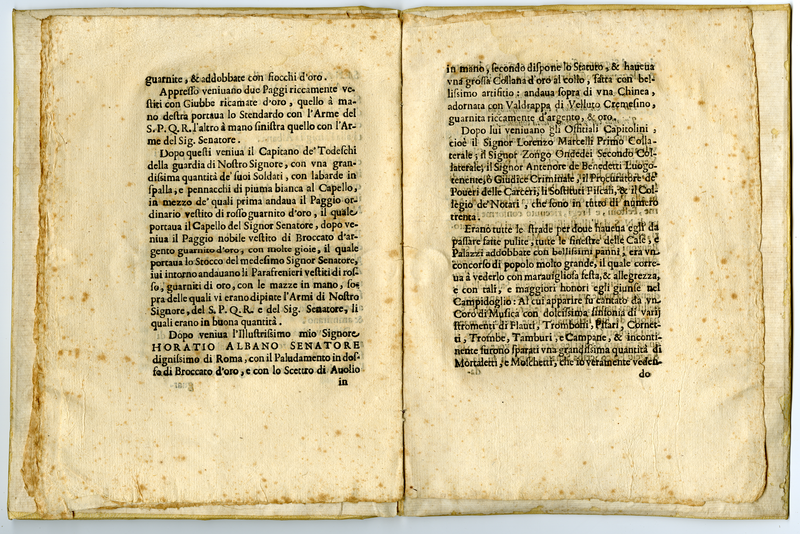 guarnite, & addobbate con fiocchi d'oro.
Appresso veniuano due Paggi riccamente ve-
stiti con Giubbe ricamate d'oro, quello à ma-
no destra portaua lo Stendardo con l'Arme del
S. P. Q. R. l'altro à mano sinistra quello con l'Ar-
me del Sig. Senatore.
Dopo questi veniua il Capitano de'Todeschi
della guardia di Nostro Signore, con vna gran-
dissima quantità de' suoi Soldati, con labarde in
spalla, e pennacchi di piuma bianca al Capello,
in mezzo de' quali prima andaua il Paggio or-
dinario vestito di rosso guarnito d'oro, il quale
portaua il Capello del Signor Senatore, dopo ve-
niua il Paggio nobile vestito di Broccato d'ar-
gento guarnito d'oro, con molte gioie, il quale
portaua lo Stocco del medesimo Signor Senatore,
iui intorno andauano li Parafrenieri vestiti di ros-
so, guarniti di oro, con le mazze in mano, so-
pra delle quali vi erano dipinte l'Armi di Nostro
Signore, del S. P. Q. R. e del Sig. Senatore, li
quali erano in buona quantità.
Dopo veniua l'Illustrissimo mio Signore
HORATIO ALBANO SENATORE
dignissimo di Roma, con il Paludamento in dos-
so di Broccato d'oro, e con lo Scettro di Auolio
in
in mano, secondo dispone lo Statuto, & haueua
vna grossa Collana d'oro al collo, fatta con bel-
lissimo artifitio: andaua sopra di vna Chinea,
adornata con Valdrappa di Velluto Cremesino,
guarnita riccamente d'argento, & oro.
Dopo lui veniuano gli Offitiali Capitolini,
cioè il Signor Lorenzo Marcelli Primo Colla-
terale, il Signor Zongo Ondedei Secondo Col-
laterale, il Signor Antenore de Benedetti Luogo-
tenente, ò Giudice Criminale, il Procuratore de'
Poueri delle Carceri, li Sostituti Fiscali, & il Col-
legio de' Notari, che sono in tutto di numero
trenta.
Erano tutte le strade per doue haueua egli da
passare fatte pulite, tutte le finestre delle Case, e
Palazzi addobbate con bellissimi panni, era vn
concorso di popolo molto grande, il quale corre-
ua à vederlo con marauigliosa festa, & allegrezza,
e con tali, e maggiori honori egli giunse nel
Campidoglio: Al cui apparire fù cantato da vn
Coro di Musica con dolcissima sinfonia di varij
stromenti di Flauti, Tromboni, Pifari, Cornet-
ti, Trombe, Tamburi, e Campane, & inconti-
nente furono sparati vna grandissima quantità di
Mortaletti, e Moschetti, che io veramente veden-
do